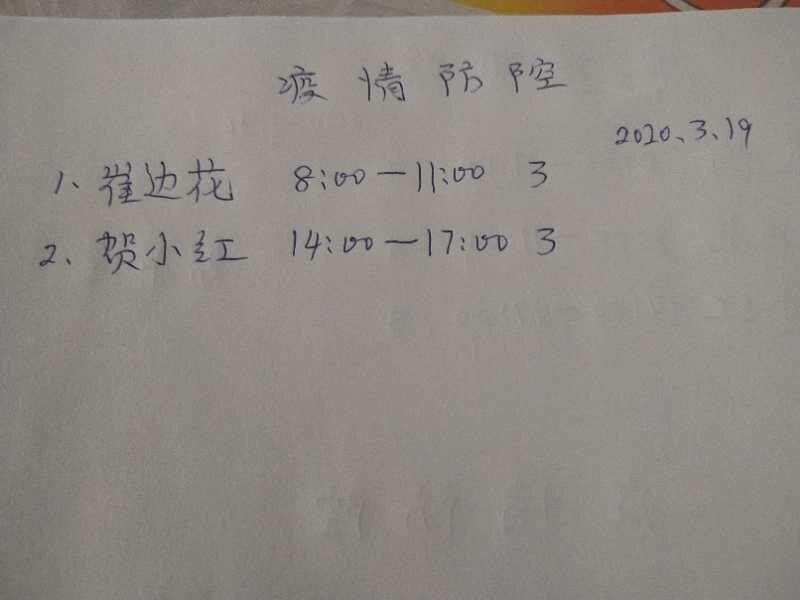 疫情防控
2020、3、19
1、崔边花 8:00—11:00 3
2、贺小红 14:00—17:00 3